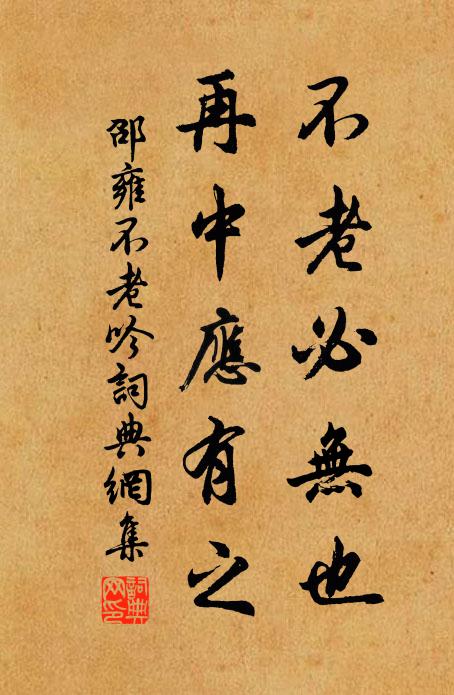 不老必無也
再中應有之
邵雍不老吟詞典網集
詞典網印